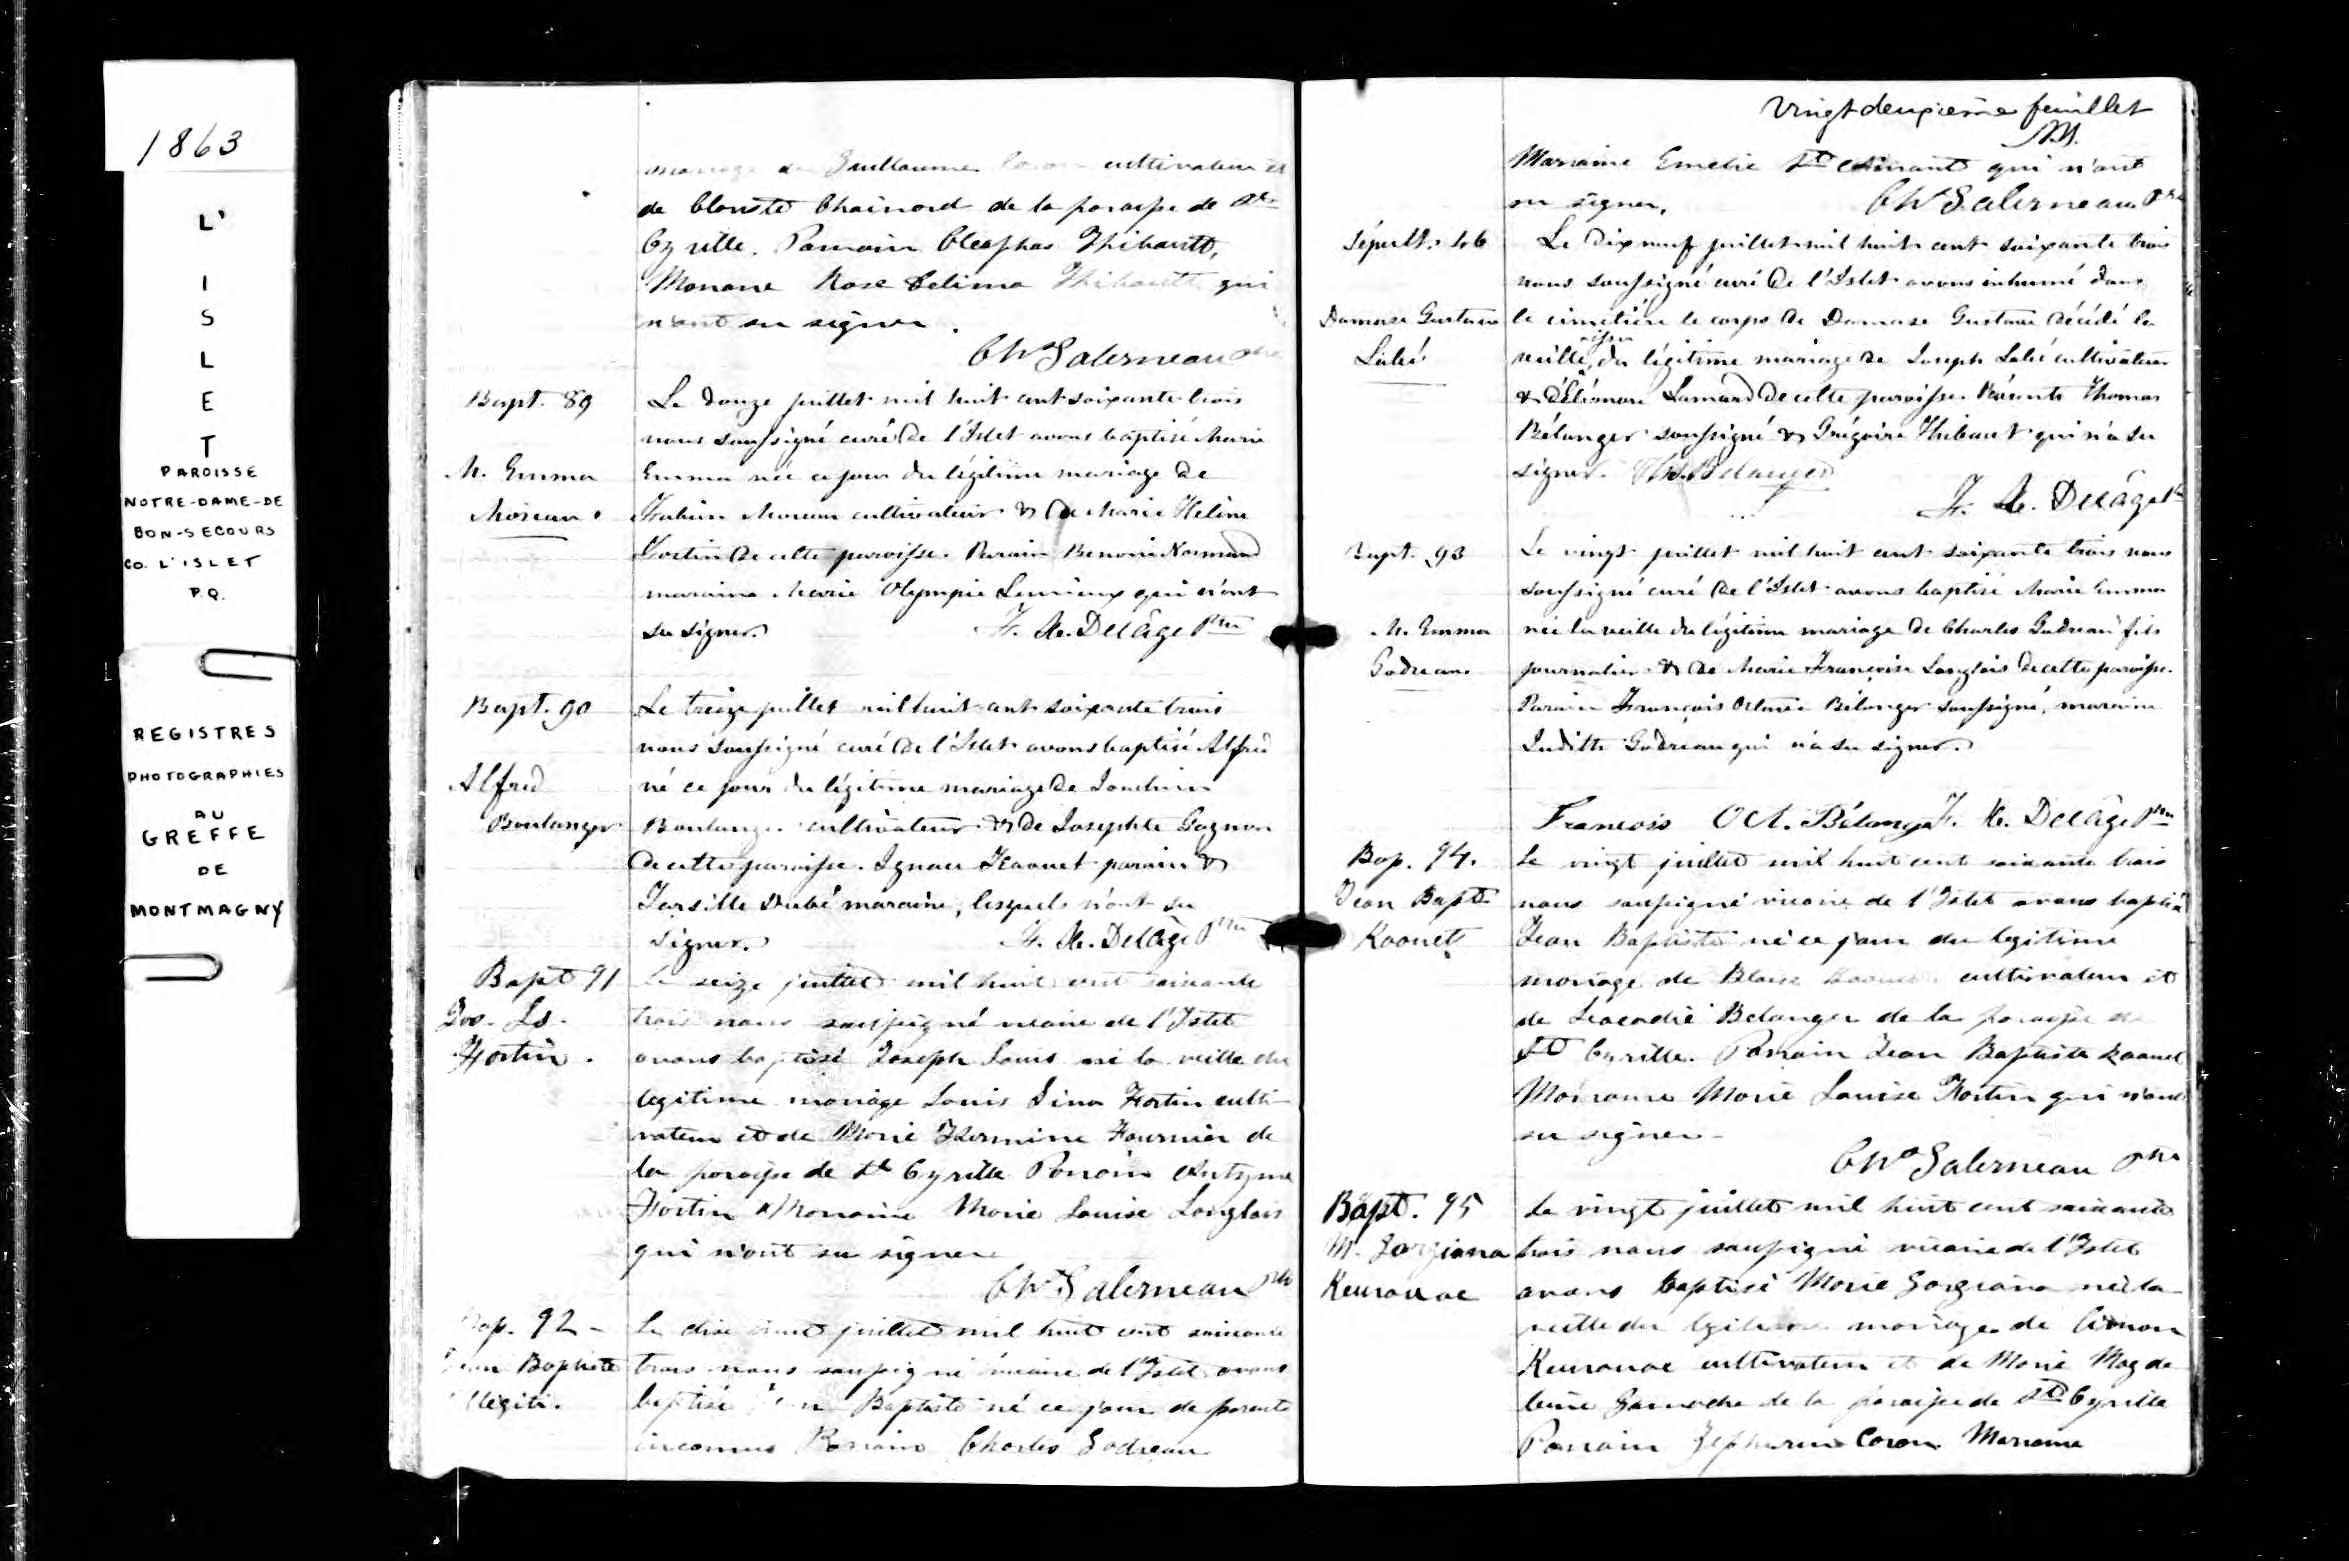 1863
L'
I
S
L
E
T
PAROISSE
NOTRE-DAME-DE
BON-SECOURS
CO. L'ISLET
P.Q.
REGISTRES
PHOTOGRAPHIES
AU
GREFFE
DE
MONTMAGNY
mariage de Guillaume cultivateur et
de Cloriste Chainord de la paroisse de St
Cyrille. Parrain Cleophas Thibault,
Maraine Rose Celima Thibault qui
n'ont su signer.
Chs Galerneau Ptre
Bapt. 89
M. Emma
Moreau
Le douze juillet mil huit cent soixante trois
nous soussigné curé de l'Islet avons baptisé Marie
Emma née ce jour du légitime mariage de
Fabien Moreau cultivateur & de Marie Héline
Fortin de cette paroisse. Parain Benonie Normand
maraine Marie Olympie Lemieux qui n'ont
su signer. F. X. Delâge Ptre
Bapt. 90
Alfred
Boulanger
Le treize juillet mil huit cent soixante trois
nous soussigné curé de l'Islet avons baptisé Alfred
né ce jour du légitime mariage de
Boulanger cultivateur & de Josephte Gagnon
de cette paroisse. Ignace Kaouet parain &
Tarsille Dubé maraine, lesquels n'ont su
signer. F. X. Delâge Ptre
Bapt 91
Jos. Ls.
Fortin.
Le seize juillet mil huit cent soixante
trois nous soussigné vicaire de l'Islet
avons baptisé Joseph Louis né la veille du
legitime mariage Louis Fortin culti-
vateur et de Marie Hermine Fournier de
la paroisse de St Cyrille Parrain Antyme
Fortin Marraine Marie Louise Langlois
qui n'ont su signer
Chs Galerneau Ptre
Bap. 92 -
Jean Baptiste
Illégiti.
Le dix huit juillet mil huit cent soixante
trois nous soussigné vicaire de l'Islet avons
baptisé Jean Baptiste né ce jour de parents
inconnus Parrain Charles Godreau
Vingt deuxième feuillet
Marraine Emelie St Amant qui n'ont
su signer. Chs Galerneau Ptre
Sépult. 46
Damase Gustave
Labé
Le dix neuf juillet mil huit cent soixante trois
nous soussigné curé de l'Islet avons inhumé dans
le cimetière le corps de Damase Gustave décédé la
veille, issu du légitime mariage de Joseph Labé cultivateur
& d'Eléonore Lamard de cette paroisse. Présents Thomas
Bélanger soussigné & Grégoire Thibaut qui n'a su
signer. Ths. Bélanger
F. X. Delâge Ptre
Bapt. 93
M. Emma
Godreau
Le vingt juillet mil huit cent soixante trois nous
soussigné curé de l'Islet avons baptisé Marie Emma
née la veille du légitime mariage de Charles Godreau fils
journalier & de Marie Françoise Langlois de cette paroisse.
Parain François Bélanger soussigné, maraine
Judithe Godreau qui n'a su signer.
Francois Oct. Bélanger F. X. Delâge Ptre
Bap. 94.
Jean Bapte
Kaouet
Le vingt juillet mil huit cent soixante trois
nous soussigné vicaire de l'Islet avons baptisé
Jean Baptiste né ce jour du legitime
mariage de Blaise Kaouet cultivateur et
de Leocadie Belanger de la paroisse de
St Cyrille. Parrain Jean Baptiste Kaouet
Marraine Marie Louise Fortin qui n'ont
su signer -
Chs Galerneau Ptre
Bapt. 95
M. Gorgiana
Keurouac
Le vingt juillet mil huit cent soixante
trois nous soussigné vicaire de l'Islet
avons baptisé Marie Gorgiana née la
veille du legitime mariage de
Keurouac cultivateur et de Marie Magde
leine Gamache de la paroisse de St Cyrille
Parrain Zephirin Caron Marraine